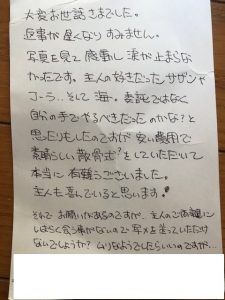 大変お世話さまでした。
返事が遅くなりすみません。
写真を見て感動し涙が止まらな
かったです。主人の好きだったサザンや
コーラ…そして海。委託ではなく
自分の手でやるべきだったのかな?と
思ったりもしたのですが安い費用で
素晴らしい散骨式をしていただいて
本当に有難うございました。
主人も喜んでいると思います。
それで お願いがあるのですが、主人の
しばらく 事がないので写メを送っていただけ
ないでしょうか?ムリなようでしたらいいのですが…